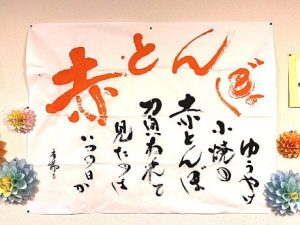 赤とんぼ
ゆうやけ
小焼の
赤とんぼ
負われて
見たのは
いつの日か